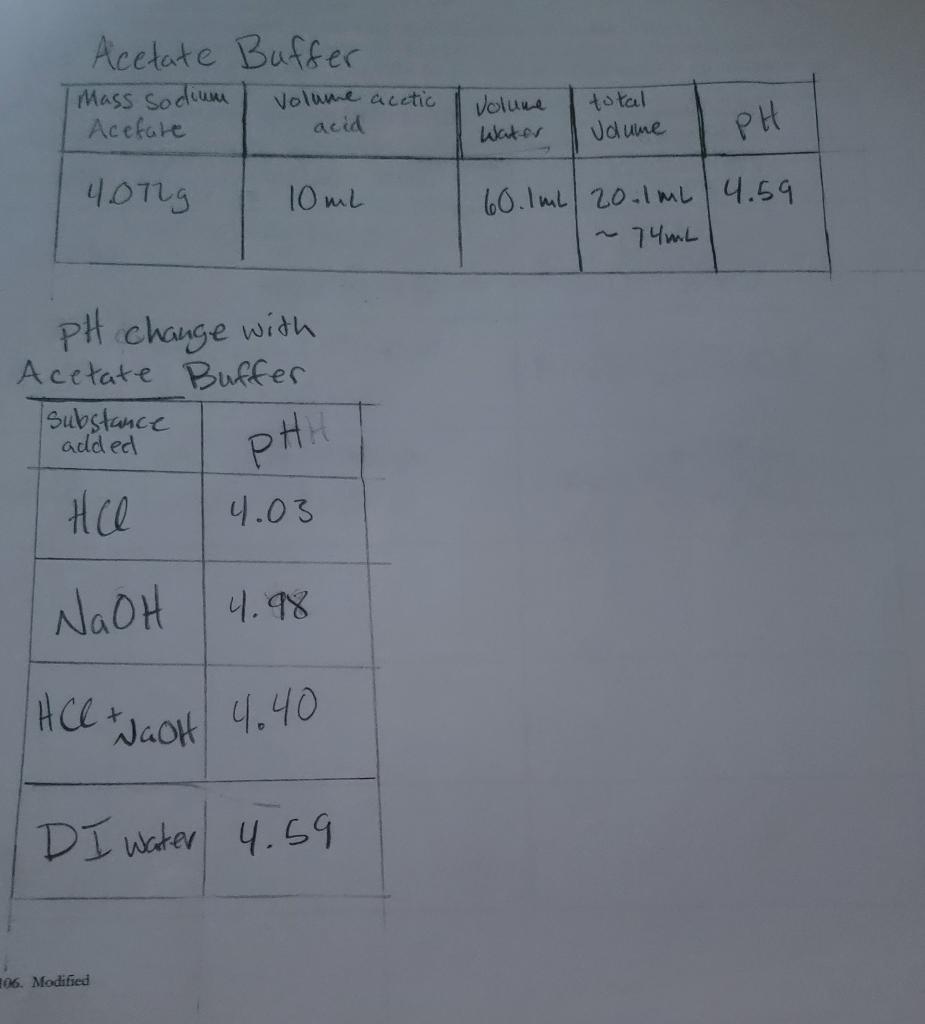 Acetate Buffer
Mass Sodium Volume acetic Volume total pH
Acetate acid Water Volume
4.072g 10mL 60.1mL 20.1mL 4.59
~ 74mL
pH change with
Acetate Buffer
Substance pHH
added
HCl 4.03
NaOH 4.98
HCl + NaOH 4.40
DI water 4.59
106. Modified